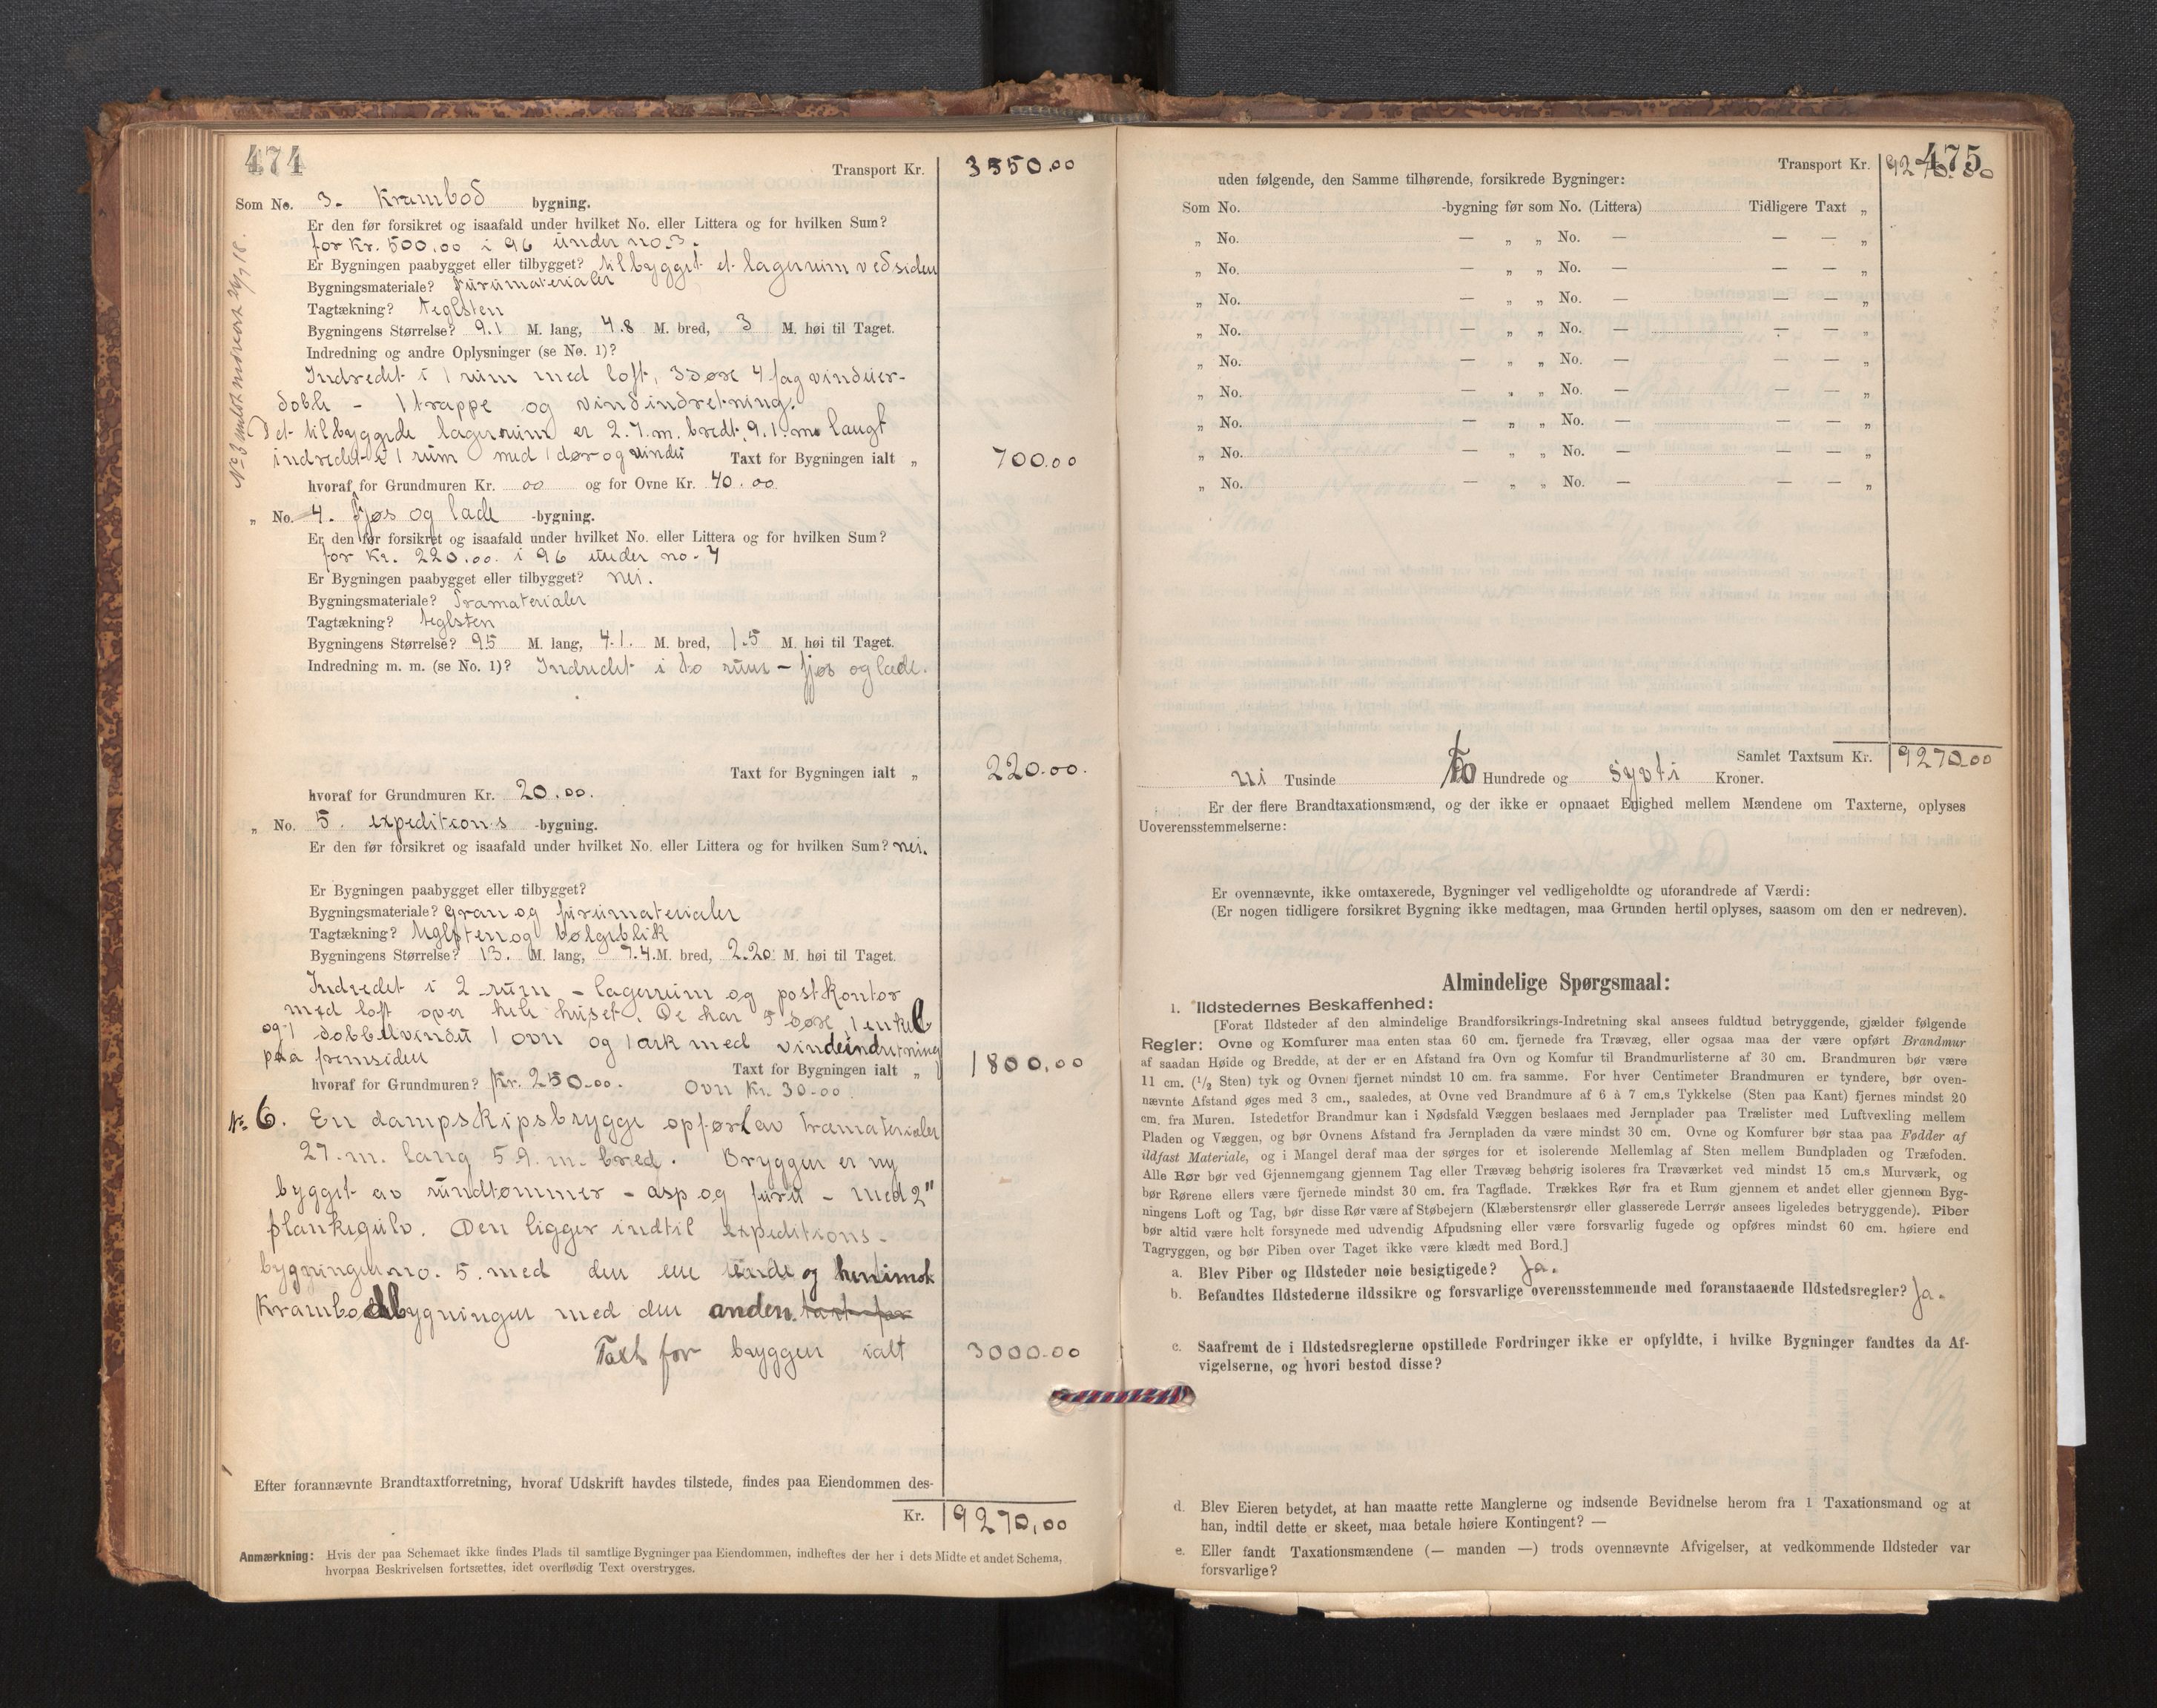 474
Transport Kr. 3550.00
Som No. 3. Krambod bygning.
Er den før forsikret og isaafald under hvilket No. eller Littera og for hvilken Sum?
for Kr. 500,00 i 96 under no. 3.
Er Bygningen paabygget eller tilbygget? tilbygget et lagerrum vedsiden
Bygningsmateriale? Furumaterialer
Tagtækning? teglsten
Bygningens Størrelse? 9.1 M. lang, 4.8 M. bred, 3 M. høi til Taget.
Indredning og andre Oplysninger (se No. 1)?
Indredet i 1 rum med loft, 3 døre 4 fag vinduer-
doble - 1 trappe og vindindretning.
Det tilbyggede lagerrum er 2.7. m. bredt, 9.1 m. langt
indredet i 1 rum med 1 dør og vindu Taxt for Bygningen ialt „ 700.00
hvoraf for Grundmuren Kr. 00 og for Ovne Kr. 40.00
„ No. 4. Fjøs og lade -bygning.
Er den før forsikret og isaafald under hvilket No. eller Littera og for hvilken Sum?
for Kr. 220.00. i 96 under no. 4
Er Bygningen paabygget eller tilbygget? nei.
Bygningsmateriale? Træmaterialer
Tagtækning? teglsten
Bygningens Størrelse? 9.5 M. lang, 4.1. M. bred, 1.5 M. høi til Taget.
Indredning m. m. (se No. 1)? Indredet i to rum - fjøs og lade.
Taxt for Bygningen ialt „ 220.00.
hvoraf for Grundmuren Kr. 20.00.
„ No. 5. expeditions -bygning.
Er den før forsikret og isaafald under hvilket No. eller Littera og for hvilken Sum? nei.
Er Bygningen paabygget eller tilbygget?
Bygningsmateriale? gran og furumaterialer
Tagtækning? teglsten og bølgeblik
Bygningens Størrelse? 13. M. lang, 7.4. M. bred, 2.20 M. høi til Taget.
Indredet i 2 rum - lagerrum og postkontor
med loft over hele huset. De har 5 døre, 1 enkel
og 1 dobbelvindu 1 ovn og 1 ark med vindeindretning
paa fremsiden Taxt for Bygningen ialt „ 1800,00
hvoraf for Grundmuren? Kr. 250.00. Ovn Kr. 30.00.
No. 6. En dampskipsbrygge opført av træmaterialer
27. m. lang 5.9. m. bred. Bryggen er ny
bygget av rundtømmer - asp og furu - med 2"
plankegulv. Den ligger indtil expeditions-
bygningen no. 5. med den ene ende og henimot
Krambodbygningen med den anden. taxt for
Taxt for bryggen ialt 3000.00
Efter forannævnte Brandtaxtforretning, hvoraf Udskrift havdes tilstede, findes paa Eiendommen des-
Kr. 9270,00
Anmærkning: Hvis der paa Schemaet ikke findes Plads til samtlige Bygninger paa Eiendommen, indheftes der her i dets Midte et andet Schema,
hvorpaa Beskrivelsen fortsættes, idet overflødig Text overstryges.
475
Transport Kr. 9270.00
uden følgende, den Samme tilhørende, forsikrede Bygninger:
Som No. -bygning før som No. (Littera) Tidligere Taxt „
„ No. — „ „ No. — — — „
„ No. — „ „ No. — — — „
„ No. — „ „ No. — — — „
„ No. — „ „ No. — — — „
„ No. — „ „ No. — — — „
„ No. — „ „ No. — — — „
„ No. — „ „ No. — — — „
„ No. — „ „ No. — — — „
„ No. — „ „ No. — — — „
Samlet Taxtsum Kr. 9270.00
ni Tusinde to Hundrede og sytti Kroner.
Er der flere Brandtaxationsmænd, og der ikke er opnaaet Enighed mellem Mændene om Taxterne, oplyses
Uoverensstemmelserne:
Er ovennævnte, ikke omtaxerede, Bygninger vel vedligeholdte og uforandrede af Værdi:
(Er nogen tidligere forsikret Bygning ikke medtagen, maa Grunden hertil oplyses, saasom om den er nedreven).
Almindelige Spørgsmaal:
1. Ildstedernes Beskaffenhed:
[Forat Ildsteder af den almindelige Brandforsikrings-Indretning skal ansees fuldtud betryggende, gjælder følgende
Regler: Ovne og Komfurer maa enten staa 60 cm. fjernede fra Trævæg, eller ogsaa maa der være opført Brandmur
af saadan Høide og Bredde, at der er en Afstand fra Ovn og Komfur til Brandmurlisterne af 30 cm. Brandmuren bør være
11 cm. (1/2 Sten) tyk og Ovnen fjernet mindst 10 cm. fra samme. For hver Centimeter Brandmuren er tyndere, bør oven-
nævnte Afstand øges med 3 cm., saaledes, at Ovne ved Brandmure af 6 à 7 cm.s Tykkelse (Sten paa Kant) fjernes mindst 20
cm. fra Muren. Istedetfor Brandmur kan i Nødsfald Væggen beslaaes med Jernplader paa Trælister med Luftvexling mellem
Pladen og Væggen, og bør Ovnens Afstand fra Jernpladen da være mindst 30 cm. Ovne og Komfurer bør staa paa Fødder af
ildfast Materiale, og i Mangel deraf maa der sørges for et isolerende Mellemlag af Sten mellem Bundpladen og Træfoden.
Alle Rør bør ved Gjennemgang gjennem Tag eller Trævæg behørig isoleres fra Træværket ved mindst 15 cm.s Murværk, og
bør Rørene ellers være fjernede mindst 30 cm. fra Tagflade. Trækkes Rør fra et Rum gjennem et andet eller gjennem Byg-
ningens Loft og Tag, bør disse Rør være af Støbejern (Klæberstensrør eller glasserede Lerrør ansees ligeledes betryggende). Piber
bør altid være helt forsynede med udvendig Afpudsning eller være forsvarlig fugede og opføres mindst 60 cm. høiere end
Tagryggen, og bør Piben over Taget ikke være klædt med Bord.]
a. Blev Piber og Ildsteder nøie besigtigede? Ja.
b. Befandtes Ildstederne ildssikre og forsvarlige overensstemmende med foranstaaende Ildstedsregler? Ja.
c. Saafremt de i Ildstedsreglerne opstillede Fordringer ikke er opfyldte, i hvilke Bygninger fandtes da Af-
vigelserne, og hvori bestod disse?
d. Blev Eieren betydet, at han maatte rette Manglerne og indsende Bevidnelse herom fra 1 Taxationsmand og at
han, indtil dette er skeet, maa betale høiere Kontingent? —
e. Eller fandt Taxationsmændene (— manden —) trods ovennævnte Afvigelser, at vedkommende Ildsteder var
forsvarlige?